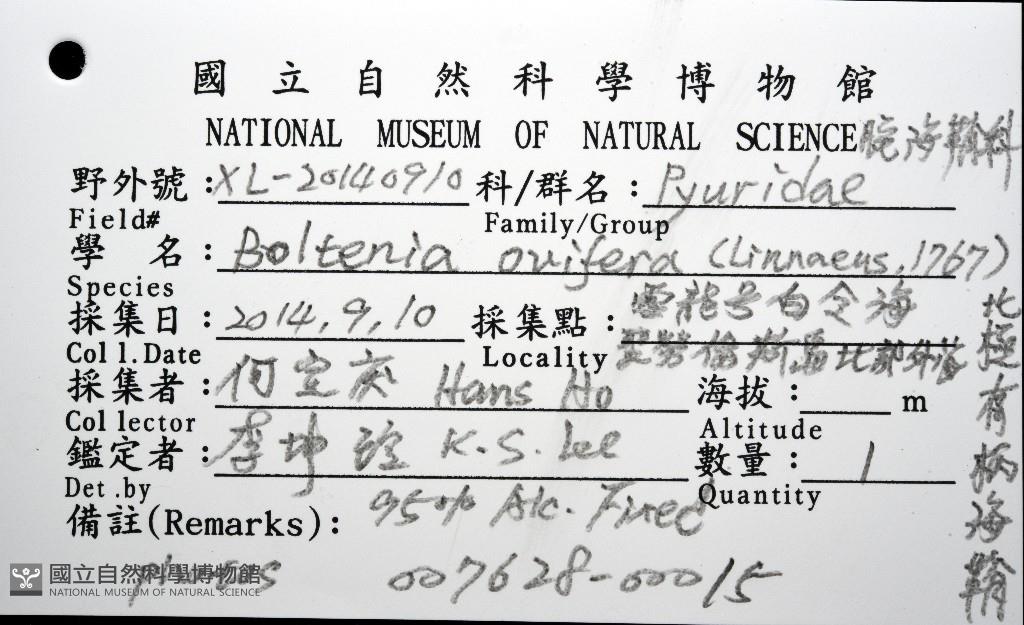 國立自然科學博物館
NATIONAL MUSEUM OF NATURAL SCIENCE 腕海鞘科
野外號:XL-20140910 科/群名:Pyuridae
Field# Family/Group
學 名:Boltenia ovifera (Linnaeus, 1767)
Species
北極有柄海鞘
採集日:2014, 9, 10 採集點:雲龍号白令海
Coll.Date Locality 聖勞倫斯島北部外海
採集者:何宣慶 Hans Ho 海拔: m
Collector Altitude
鑑定者:李坤瑄 K.S. Lee 數量:1
Det.by Quantity
備註(Remarks): 95% Alc. Fixed
007628-00015
國立自然科學博物館
NATIONAL MUSEUM OF NATURAL SCIENCE